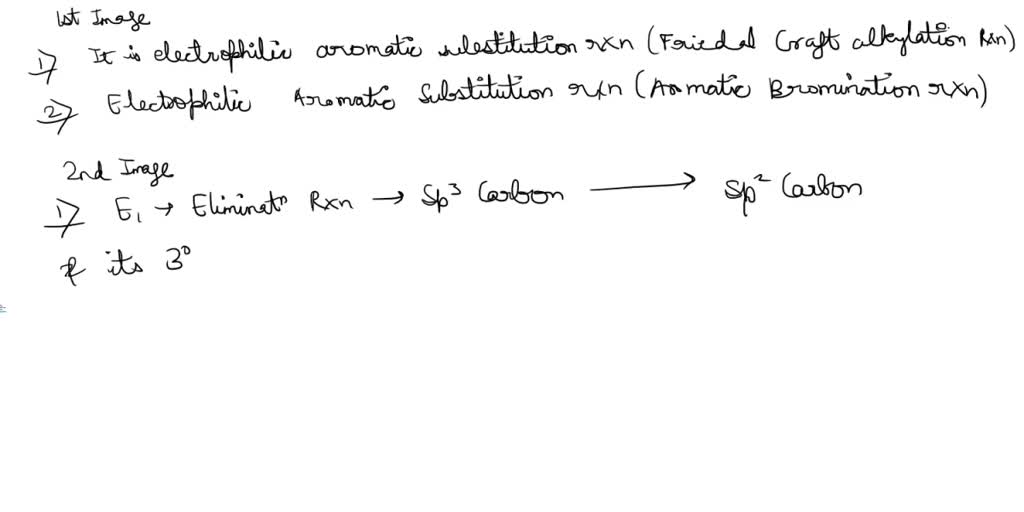 1st Image
1) It is electrophilic aromatic substitution rxn (Friedal Craft alkylation Rxn)
2) Electrophilic Aromatic Substitution rxn (Aromatic Bromination rxn)
2nd Image
1) E1 → Eliminatn Rxn → Sp3 Carbon → Sp2 Carbon
& its 3°